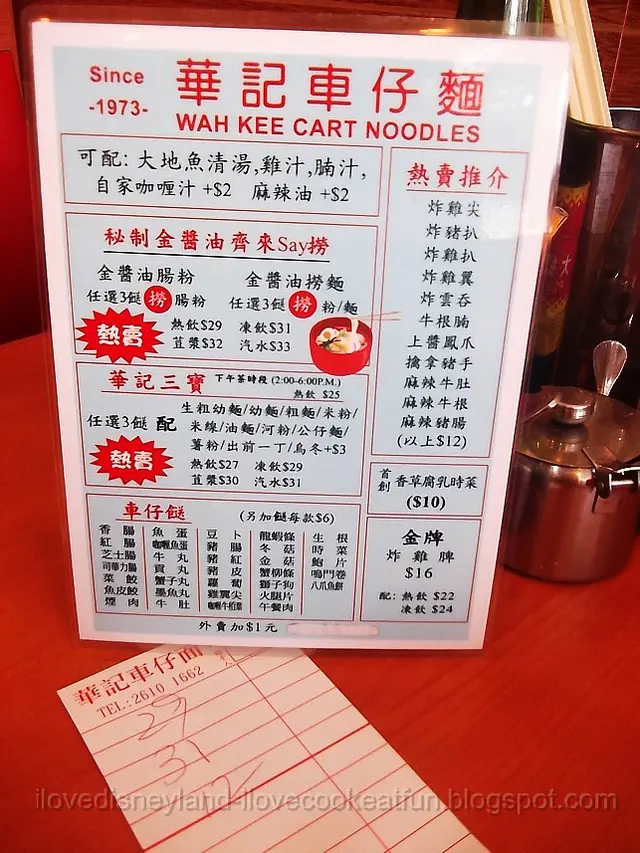 Since
-1973-
華記車仔麵
WAH KEE CART NOODLES
可配: 大地魚清湯,雞汁,腩汁,
自家咖喱汁 +$2 麻辣油 +$2
秘制金醬油齊來Say撈
金醬油腸粉 金醬油撈麵
任選3餸 撈 腸粉 任選3餸 撈 粉/麵
熱賣
熱飲$29 凍飲$31
荳漿$32 汽水$33
華記三寶 下午茶時段 (2:00-6:00P.M.)
熱飲 $25
任選3餸 配
生粗幼麵/幼麵/粗麵/米粉/
米線/油麵/河粉/公仔麵/
薯粉/出前一丁/烏冬+$3
熱賣
熱飲$27 凍飲$29
荳漿$30 汽水$31
車仔餸 (另加餸每款$6)
香腸 魚蛋 豆卜 龍蝦條 生根
紅腸 咖喱魚蛋 豬腸 冬菇 時菜
芝士腸 牛丸 豬紅 金菇 鮑片
司華力腸 貢丸 豬皮 蟹柳條 鳴門卷
菜餃 蟹子丸 蘿蔔 獅子狗 八爪魚餅
魚皮餃 墨魚丸 雞翼尖 火腿片
煙肉 牛肚 咖喱牛栢葉 午餐肉
外賣加$1元
熱賣推介
炸雞尖
炸豬扒
炸雞扒
炸雞翼
炸雲吞
牛根腩
上醬鳳爪
擒拿豬手
麻辣牛肚
麻辣牛根
麻辣豬腸
(以上$12)
首創 香草腐乳時菜
($10)
金牌
炸雞髀
$16
配: 熱飲 $22
凍飲 $24
華記車仔面
TEL:2610 1662
29
31
ilovedisneyland-ilovecookeatfun.blogspot.com